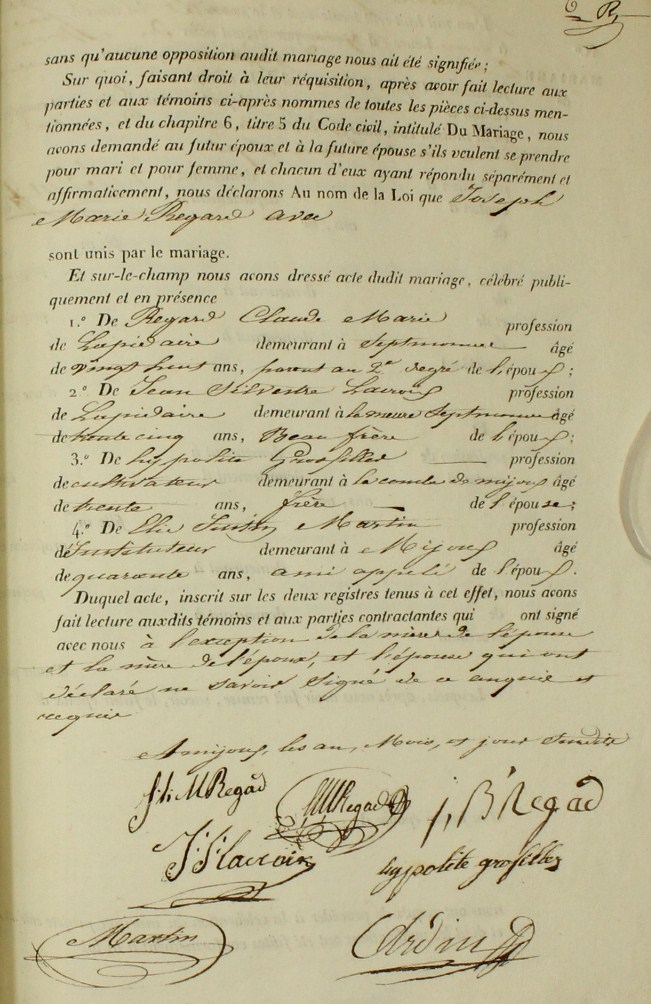 sans qu'aucune opposition audit mariage nous ait été signifiée ;
Sur quoi, faisant droit à leur réquisition, après avoir fait lecture aux
parties et aux témoins ci-après nommes de toutes les pièces ci-dessus men-
tionnées, et du chapitre 6, titre 5 du Code civil, intitulé Du Mariage, nous
avons demandé au futur époux et à la future épouse s'ils veulent se prendre
pour mari et pour femme, et chacun d'eux ayant répondu séparément et
affirmativement, nous déclarons Au nom de la Loi que Joseph
Marie Regard avec
sont unis par le mariage.
Et sur-le-champ nous avons dressé acte dudit mariage, célébré publi-
quement et en présence
1.° De Regard Claude Marie profession
de Lapidaire demeurant à Septmoncel âgé
de vingt huit ans, parent au 2e degré de l'époux ;
2.° De Jean Silvestre Lacroix profession
de Lapidaire demeurant à la meure Septmoncel âgé
de trente cinq ans, Beau frère de l'époux ;
3.° De hypolite Grosfillez profession
de cultivateur demeurant à la combe de mijoux âgé
de trente ans, frère de l'épouse ;
4.° De Elie Martin profession
de Instituteur demeurant à Mijoux âgé
de quarante ans, ami appelé de l'époux.
Duquel acte, inscrit sur les deux registres tenus à cet effet, nous avons
fait lecture auxdits témoins et aux parties contractantes qui ont signé
avec nous à l'exception de la mère de l'épouse
et la mère de l'époux, et l'épouse qui ont
déclaré ne savoir signé de ce enquie et
requie
A mijoux, les an, Mois, et jour Susdits
j. h. M Regad
M Regad
j, B Regad
J. S. lacroix
hypolite grosfillez
Martin